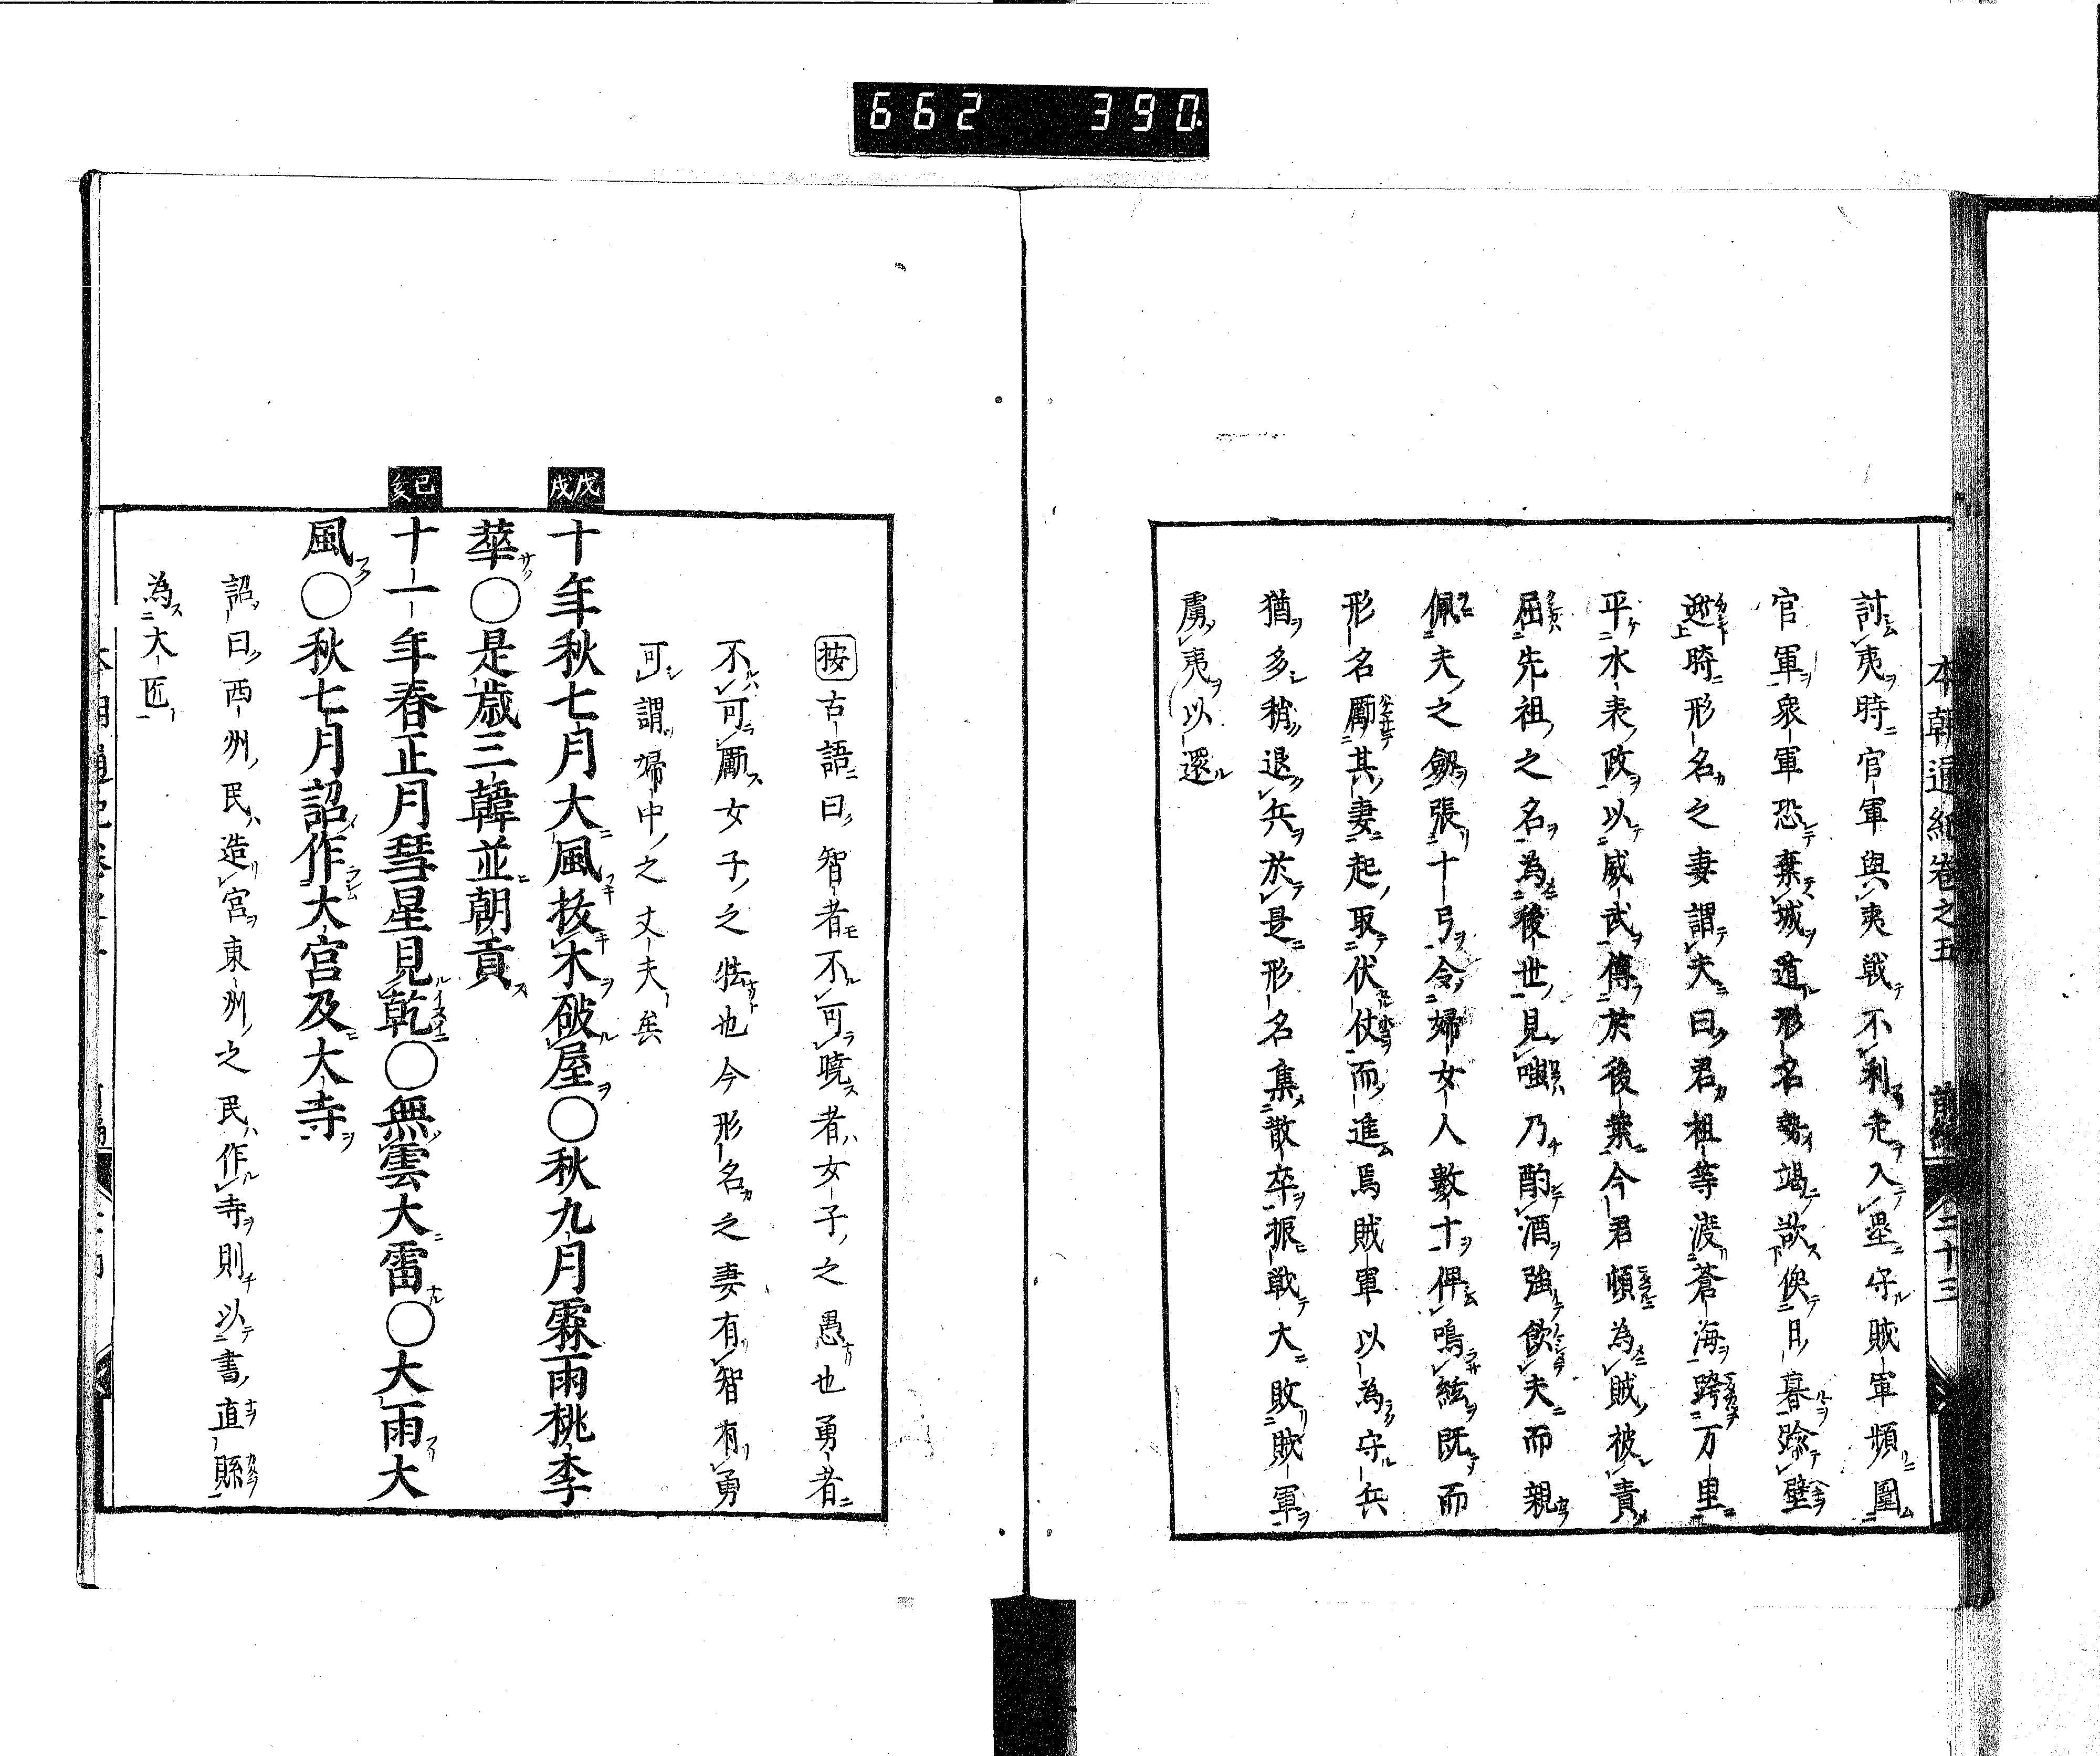 662 390
本朝通紀卷之五 前編 二十三
討夷時官軍與夷戦不利走入壘守賊軍頻圍
官軍衆軍恐棄城遁形名勢竭欲俟日暮踰壁
逃時形名之妻謂夫曰君祖等渡蒼海跨万里
平水表政以威武傳於後葉今君頓為賊被責
屈先祖之名為後世見嗤乃酌酒強飲夫而親
佩夫之劔張十弓令婦女人數十俾鳴絃既而
形名勵其妻起取伏仗而進焉賊軍以為守兵
猶多稍退兵於是形名集散卒振戦大敗賊軍
虜夷以還
按古語曰智者不可暁者女子之愚也勇者
不可勵女子之怯也今形名之妻有智有勇
可謂婦中之丈夫矣
戊戌
十年秋七月大風抜木破屋〇秋九月霖雨桃李
華〇是歳三韓並朝貢
己亥
十一年春正月彗星見乾〇無雲大雷〇大雨大
風〇秋七月詔作大宮及大寺
詔曰西州民造宮東州之民作寺則以書直縣
為大匠